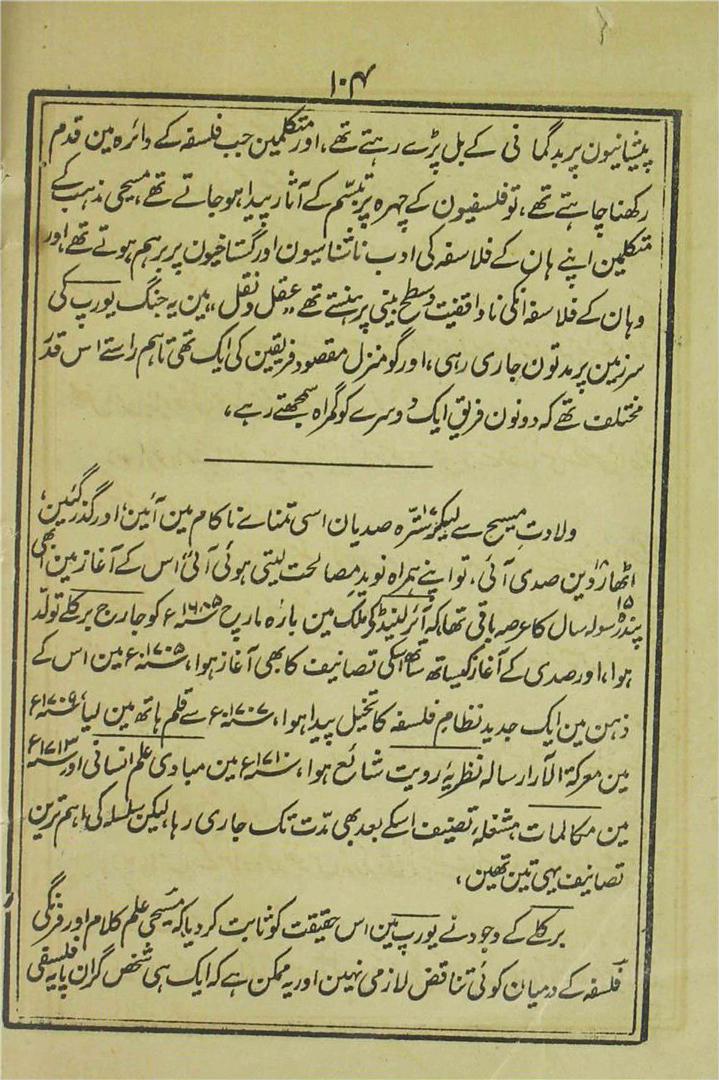 ۱۰۴
پیشانیون پر بدگمانی کے بل پڑے رہتے تھے، اور متکلمین جب فلسفہ کے دائرہ مین قدم
رکھنا چاہتے تھے، تو فلسفیون کے چہرہ پر تبسّم کے آثار پیدا ہو جاتے تھے، مسیحی مذہب کے
متکلمین اپنے ہان کے فلاسفہ کی ادب ناشناسیون اور گستاخیون پر برہم ہوتے تھے، اور
وہان کے فلاسفہ انکی ناواقفیت و سطح بینی پر ہنستے تھے "عقل و نقل" مین یہ جنگ یورپ کی
سرزمین پر مدتون جاری رہی، اور گو منزل مقصود فریقین کی ایک تھی تاہم راستے اس قدر
مختلف تھے کہ دونون فریق ایک دوسرے کو گمراہ سمجھتے رہے،
ولادتِ مسیح سے لیکر سترہ صدیان اسی تمناے ناکام مین آئین، اور گذر گئین،
اٹھارہوین صدی آئی، تو اپنے ہمراہ نویدِ مصالحت لیتی ہوئی آئی، اس کے آغاز مین ابھی
پندرہ سولہ سال کا عرصہ باقی تھا، کہ آئرلینڈ کی ملک مین بارہ مارچ ۱۶۸۵ء کو جارج برکلے تولّد
ہوا، اور صدی کے آغاز کیساتھ ساتھ اسکی تصانیف کا بھی آغاز ہوا، ۱۷۰۵ء مین اس کے
ذہن مین ایک جدید نظامِ فلسفہ کا تخیل پیدا ہوا، ۱۷۰۷ء سے قلم ہاتھ مین لیا، ۱۷۰۹ء
مین معرکۃ الآرا رسالہ نظریۂ رویت شائع ہوا، ۱۷۱۰ء مین مبادی علم انسانی اور ۱۷۱۳ء
مین مکالمات، مشغلۂ تصنیف اسکے بعد بھی مدّت تک جاری رہا، لیکن سلسلہ کی اہم ترین
تصانیف یہی تین تھین،
برکلے کے وجود نے یورپ مین اس حقیقت کو ثابت کر دیا کہ مسیحی علم کلام اور فرنگی
فلسفہ کے درمیان کوئی تناقض لازمی نہین اور یہ ممکن ہے کہ ایک ہی شخص گران پایہ فلسفی